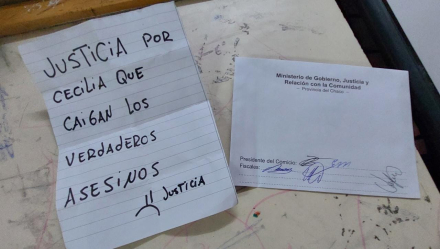 JUSTICIA POR
CECILIA QUE
CAIGAN LOS
VERDADEROS
ASESINOS
JUSTICIA
Ministerio de Gobierno, Justicia y
Relación con la Comunidad
- Provincia del Chaco -
Presidente del Comicio:
Fiscales: